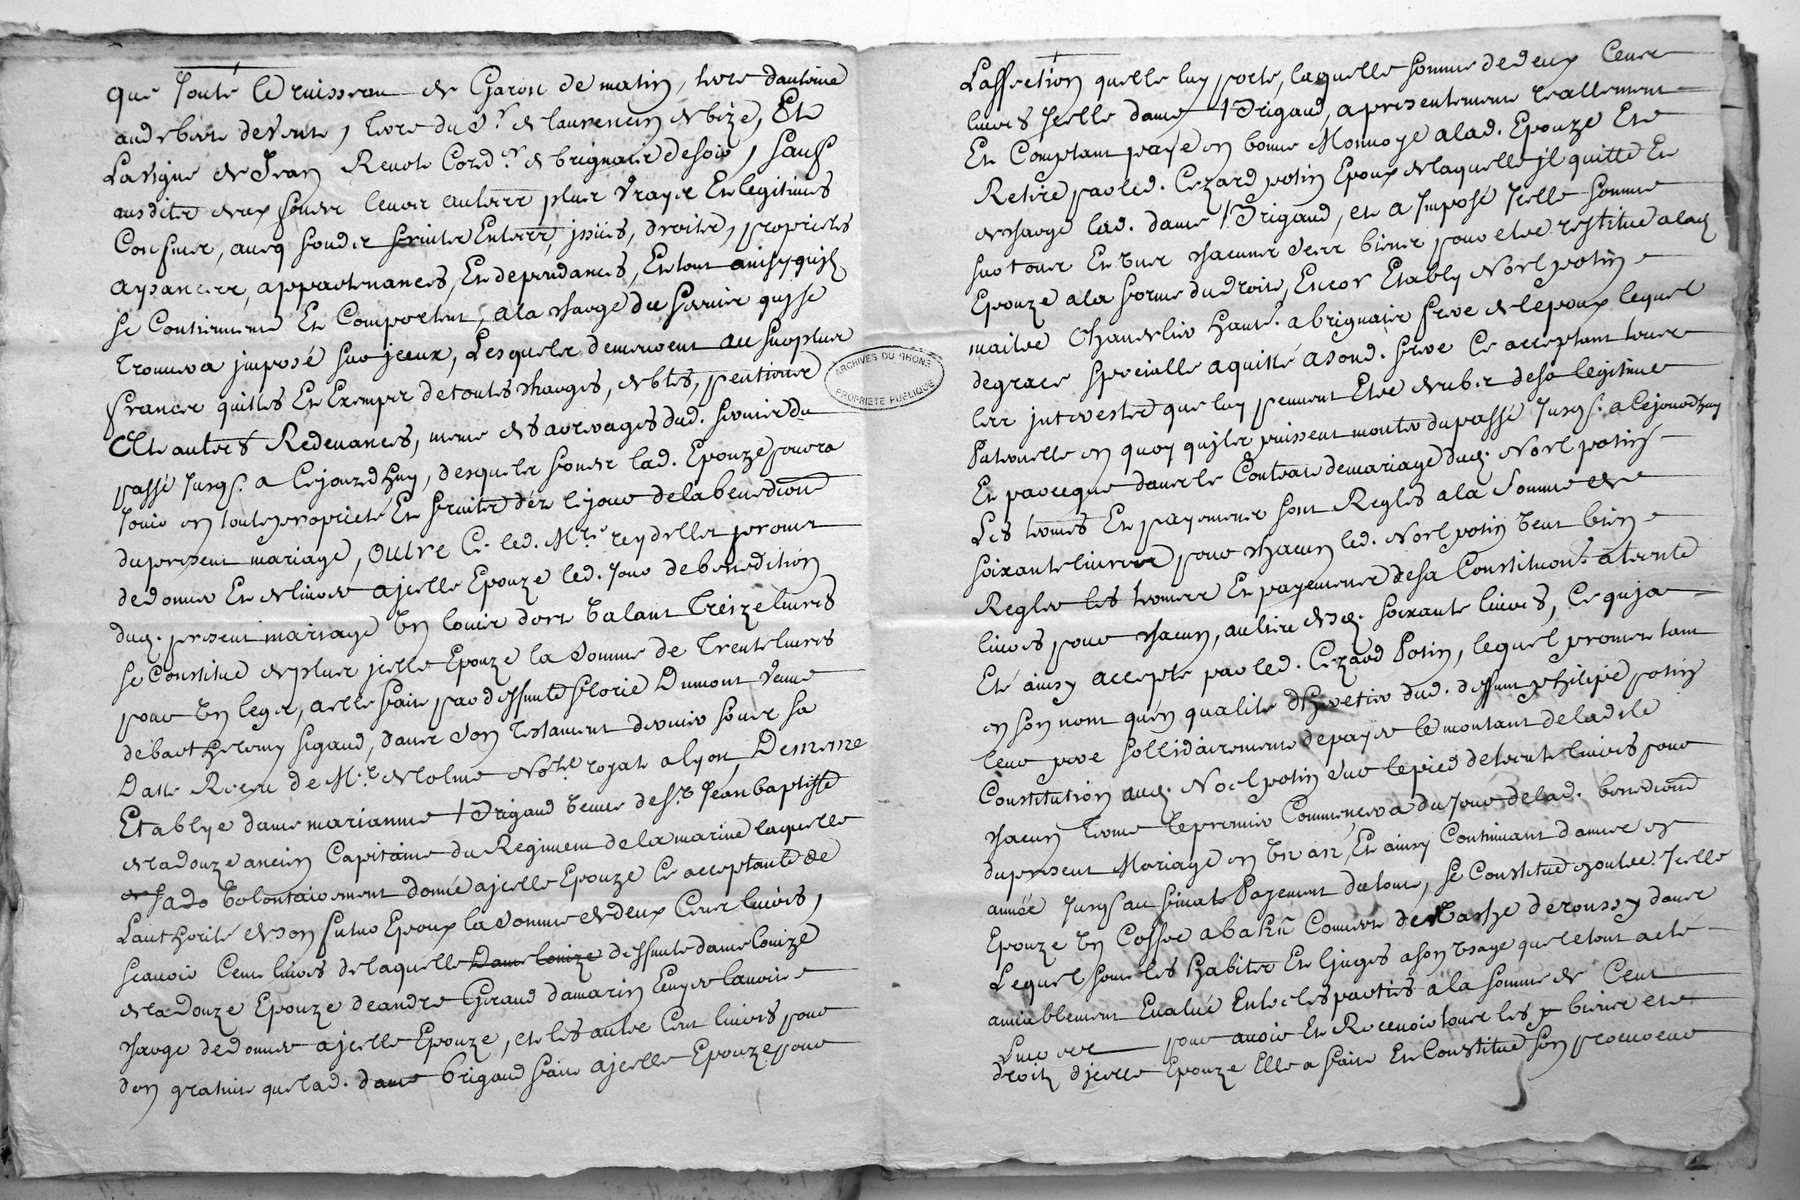 que Joute le ruisseau de Garon de matin, terre dantoine
audebert de vente, terre du Sr. de laurencin de bize, Et
La vigne de Jean Revole Cord.r de brignais de soir, sauf
ausdits deux fonds leurs autres plus vrayes Et legitimes
Confins, avecq fonds Entrés, issües, droits, proprietés
aysances, appartenances, Et dependances, Et tout ainsy quils
se Contiennent Et Comportent, a la charge du servis quy se
trouvera jmposé sur jceux, Lesquels demeurent au surplus
francs quittes Et Exempts de toutes charges, debtes, pentions
Et autres Redevances, meme des arrerages dud. servis du
passé jusq. a Cejourdhuy, desquels fonds lad. Epouze pourra
jouir en toute proprieté Et fruits déz le jour de la benediction
du present mariage, Outre Ce led. Mre. reydellet promet
de donner Et delivrer a jcelle Epouze led. Jour de benedition
dud. present mariage Un louis dort Valant Treize livres
se Constitue de plus jcelle Epouze la Somme de Trente livres
pour Un leger, a elle fait par deffunte florie Dumont veuve
de barthelemy sigaud, dans Son testament dernier sous sa
Datte Receu de Mr. delolme Notre. royal a lyon, De meme
Etablye dame marianne Brigaud veuve de Sr. Jean baptiste
de ladouze ancien Capitaine du Regiment de la marine laquelle
a Volontairement donné a jcelle Epouze Ce acceptante de
Lauthorité de son futur Epoux la Somme de deux Cens livres,
scavoir Cent livres de laquelle Dame louize deffunte dame louize
de ladouze Epouze de andré Giraud damarin
charge de donner a jcelle Epouze, et les autres Cent livres pour
don gratuit que lad. dame brigaud fait a jcelle Epouze pour
Laffection quelle luy porte, laquelle somme de deux Cens
livres jcelle dame Brigaud, a presentement reallement
Et Comptant payé en bonne Monnoye a lad. Epouze Et
Retiré par led. Cezard potin Epoux de laquelle jl quitte Et
decharge lad. dame Brigaud, et a Jmposé jcelle somme
sur tous Et Uns chacuns Ses biens pour etre restitué a lad.
Epouze a la forme du droit, Encor Etably Noel potin
maitre Chandelier hant. a brignais frere de lepoux lequel
de grace specialle a quitté a sond. frere Ce acceptant tous
les jnterests que luy peuvent Etre deubs de sa legitime
Paternelle en quoy quils puissent monter du passé Jusq. a Cejourdhuy
Et parceque dans le Contrat de mariage dud. Noel potin
Les termes Et payemens sont Reglés a la Somme de
soixante livres pour chacun led. Noel potin Veut bien
Regler les termes Et payemens de sa Constitution a trente
livres pour chacun, au lieu desd. soixante livres, Ce qui a
Eté ainsy accepté par led. Cezard Potin, lequel promet tant
en son nom quen qualité dheretier dud. deffunt philipe potin
leur pere sollidairement de payer le montant de ladite
Constitution aud. Noel potin Sur le pied de trente livres pour
chacun terme le premier Commencera du Jour de lad. benediction
du present Mariage en Un an, Et ainsy Continuant dannée en
année Jusqu au final Payement du tout, se Constitue en outre Jcelle
Epouze Un Coffre abahu Couvert de Vache de roussy dans
Lequel sont les habits Et linges a son Usage que le tout a eté
amiablement Evalué Entre les parties a la somme de Cent
Livres pour avoir Et Recevoir tous les biens et
droits djcelle Epouze Elle a fait Et Constitué son procureur
ARCHIVES DU RHONE
PROPRIETE PUBLIQUE